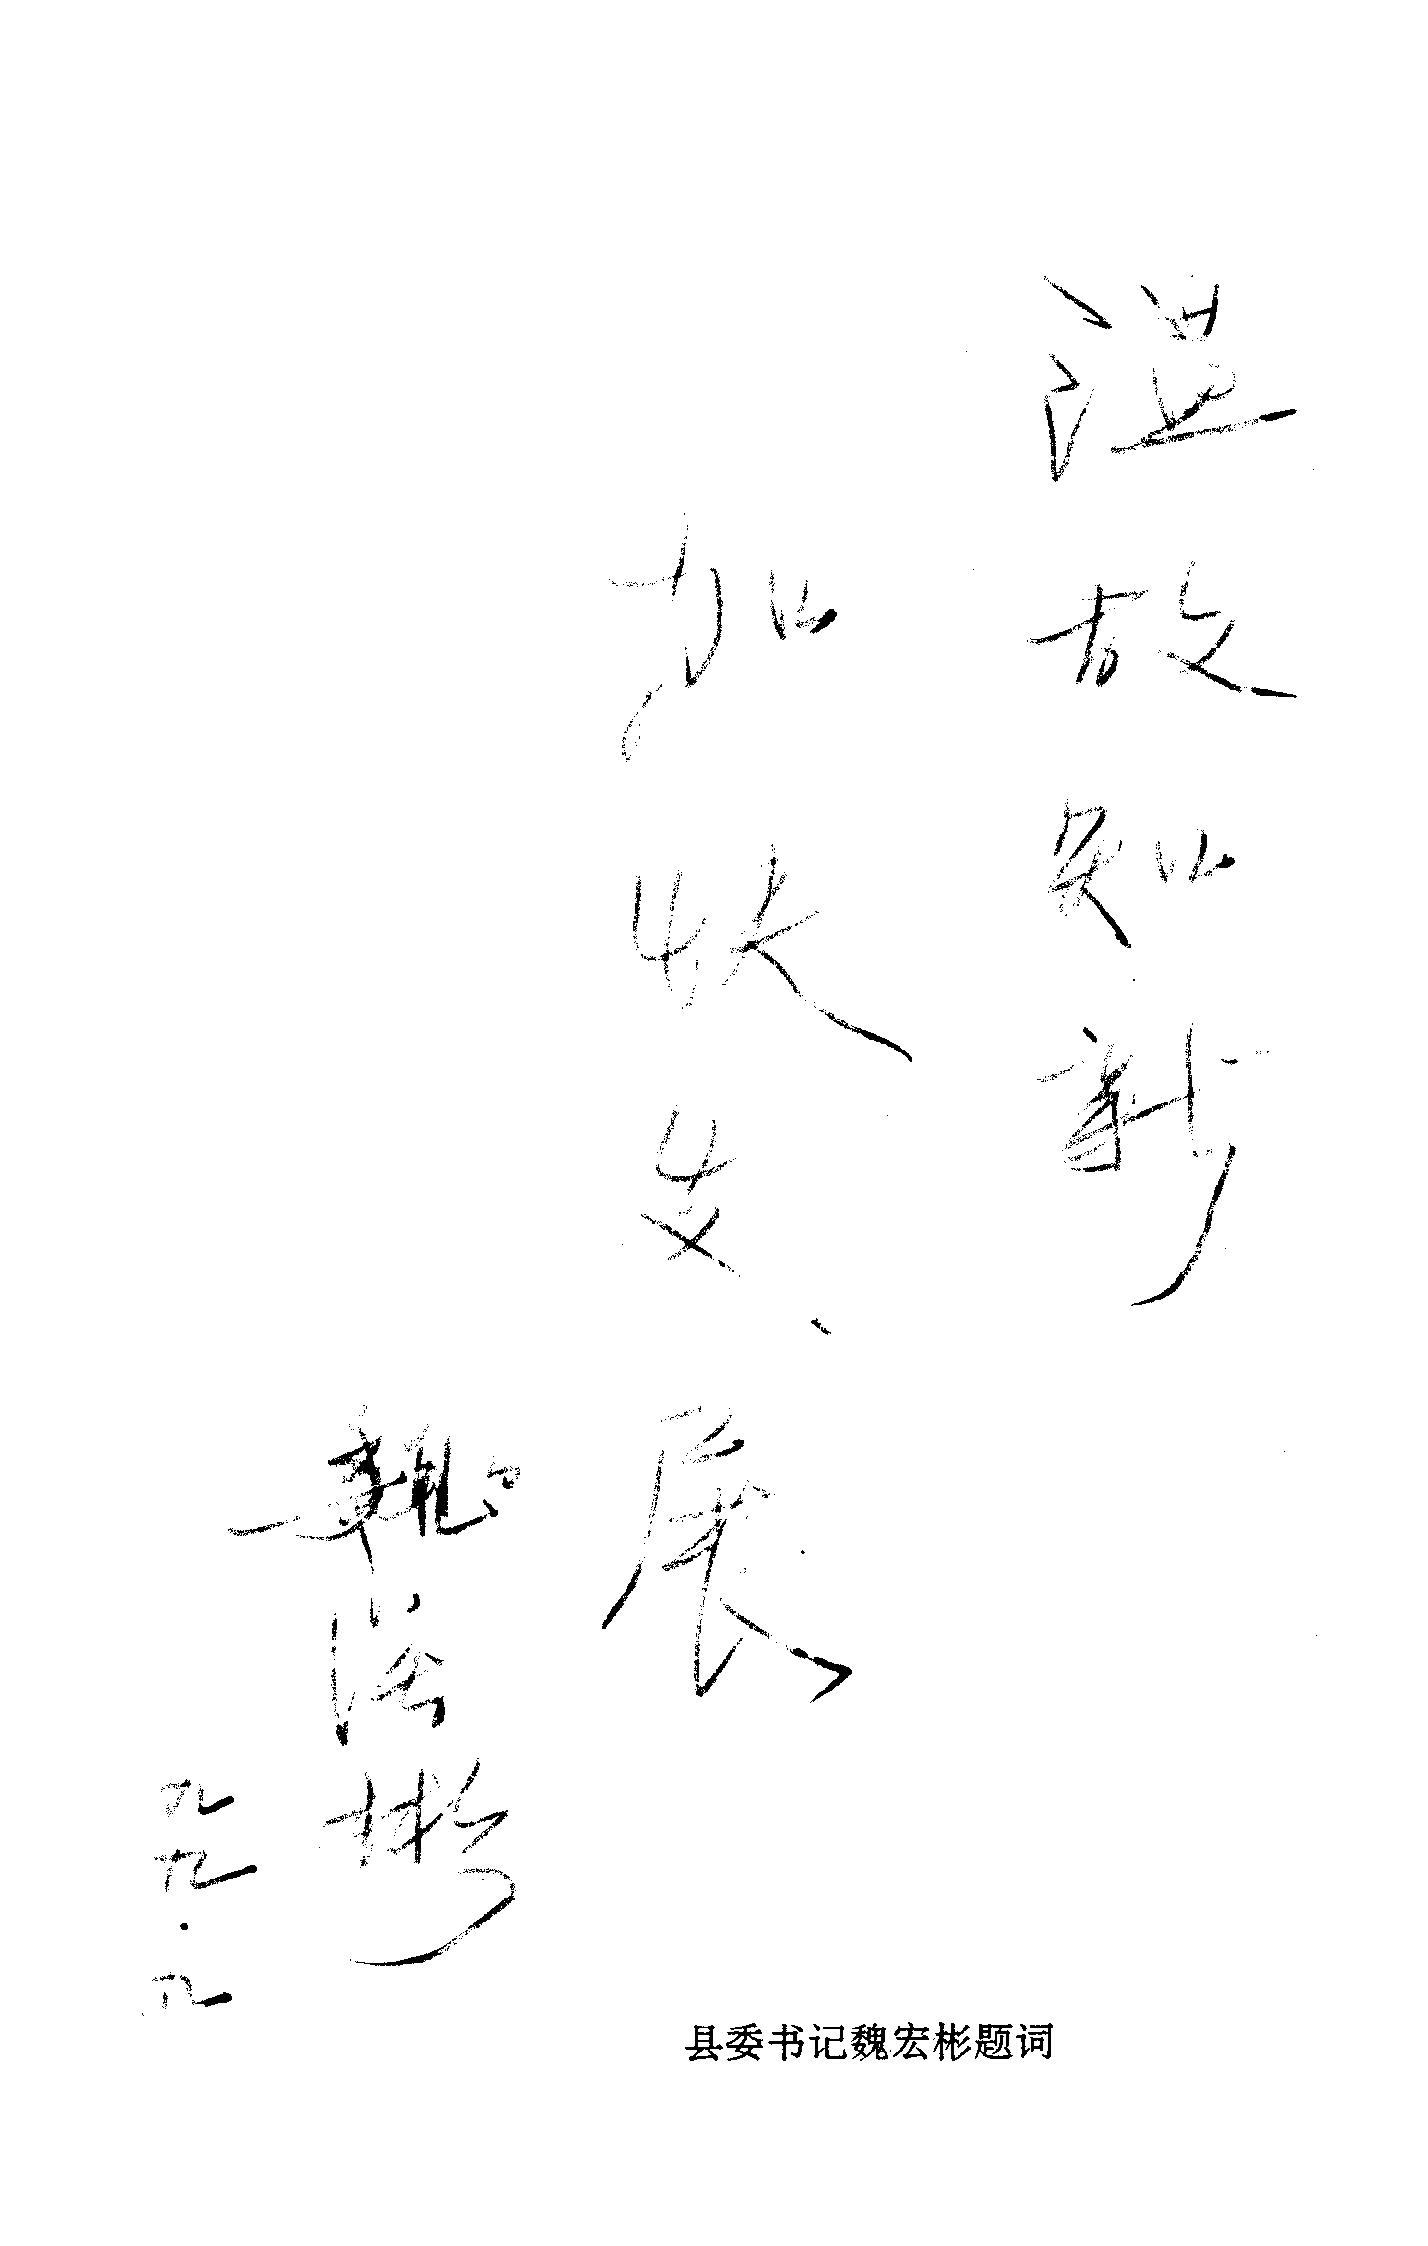 温故知新
加快发展
魏宏彬
九九·八
县委书记魏宏彬题词